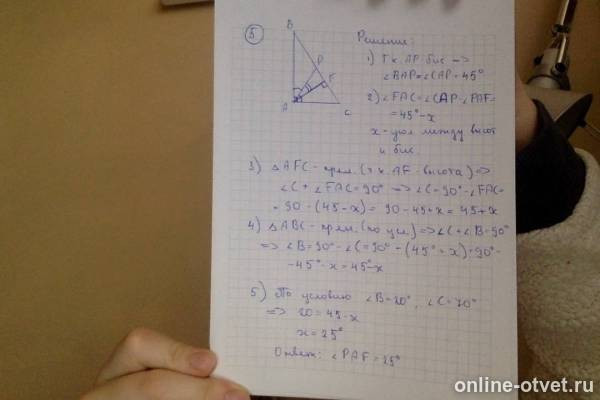 5
B
P
F
A
C
Решение:
1) Т.к. AP-бис =>
∠BAP=∠CAP=45°
2) ∠FAC=∠CAP-∠PAF=
=45°-x
x-угол между высот
и бис
3) △AFC-прям.(т.к. AF-высота)=>
∠C+∠FAC=90° => ∠C=90°-∠FAC=
=90-(45-x)=90-45+x=45+x
4) △ABC-прям.(по усл)=>∠C+∠B=90°
=> ∠B=90°-∠C=90°-(45°+x)=90°-
-45°-x=45°-x
5) По условию ∠B=20°, ∠C=70°
=> 20=45-x
x=25°
Ответ: ∠PAF=25°
online-otvet.ru